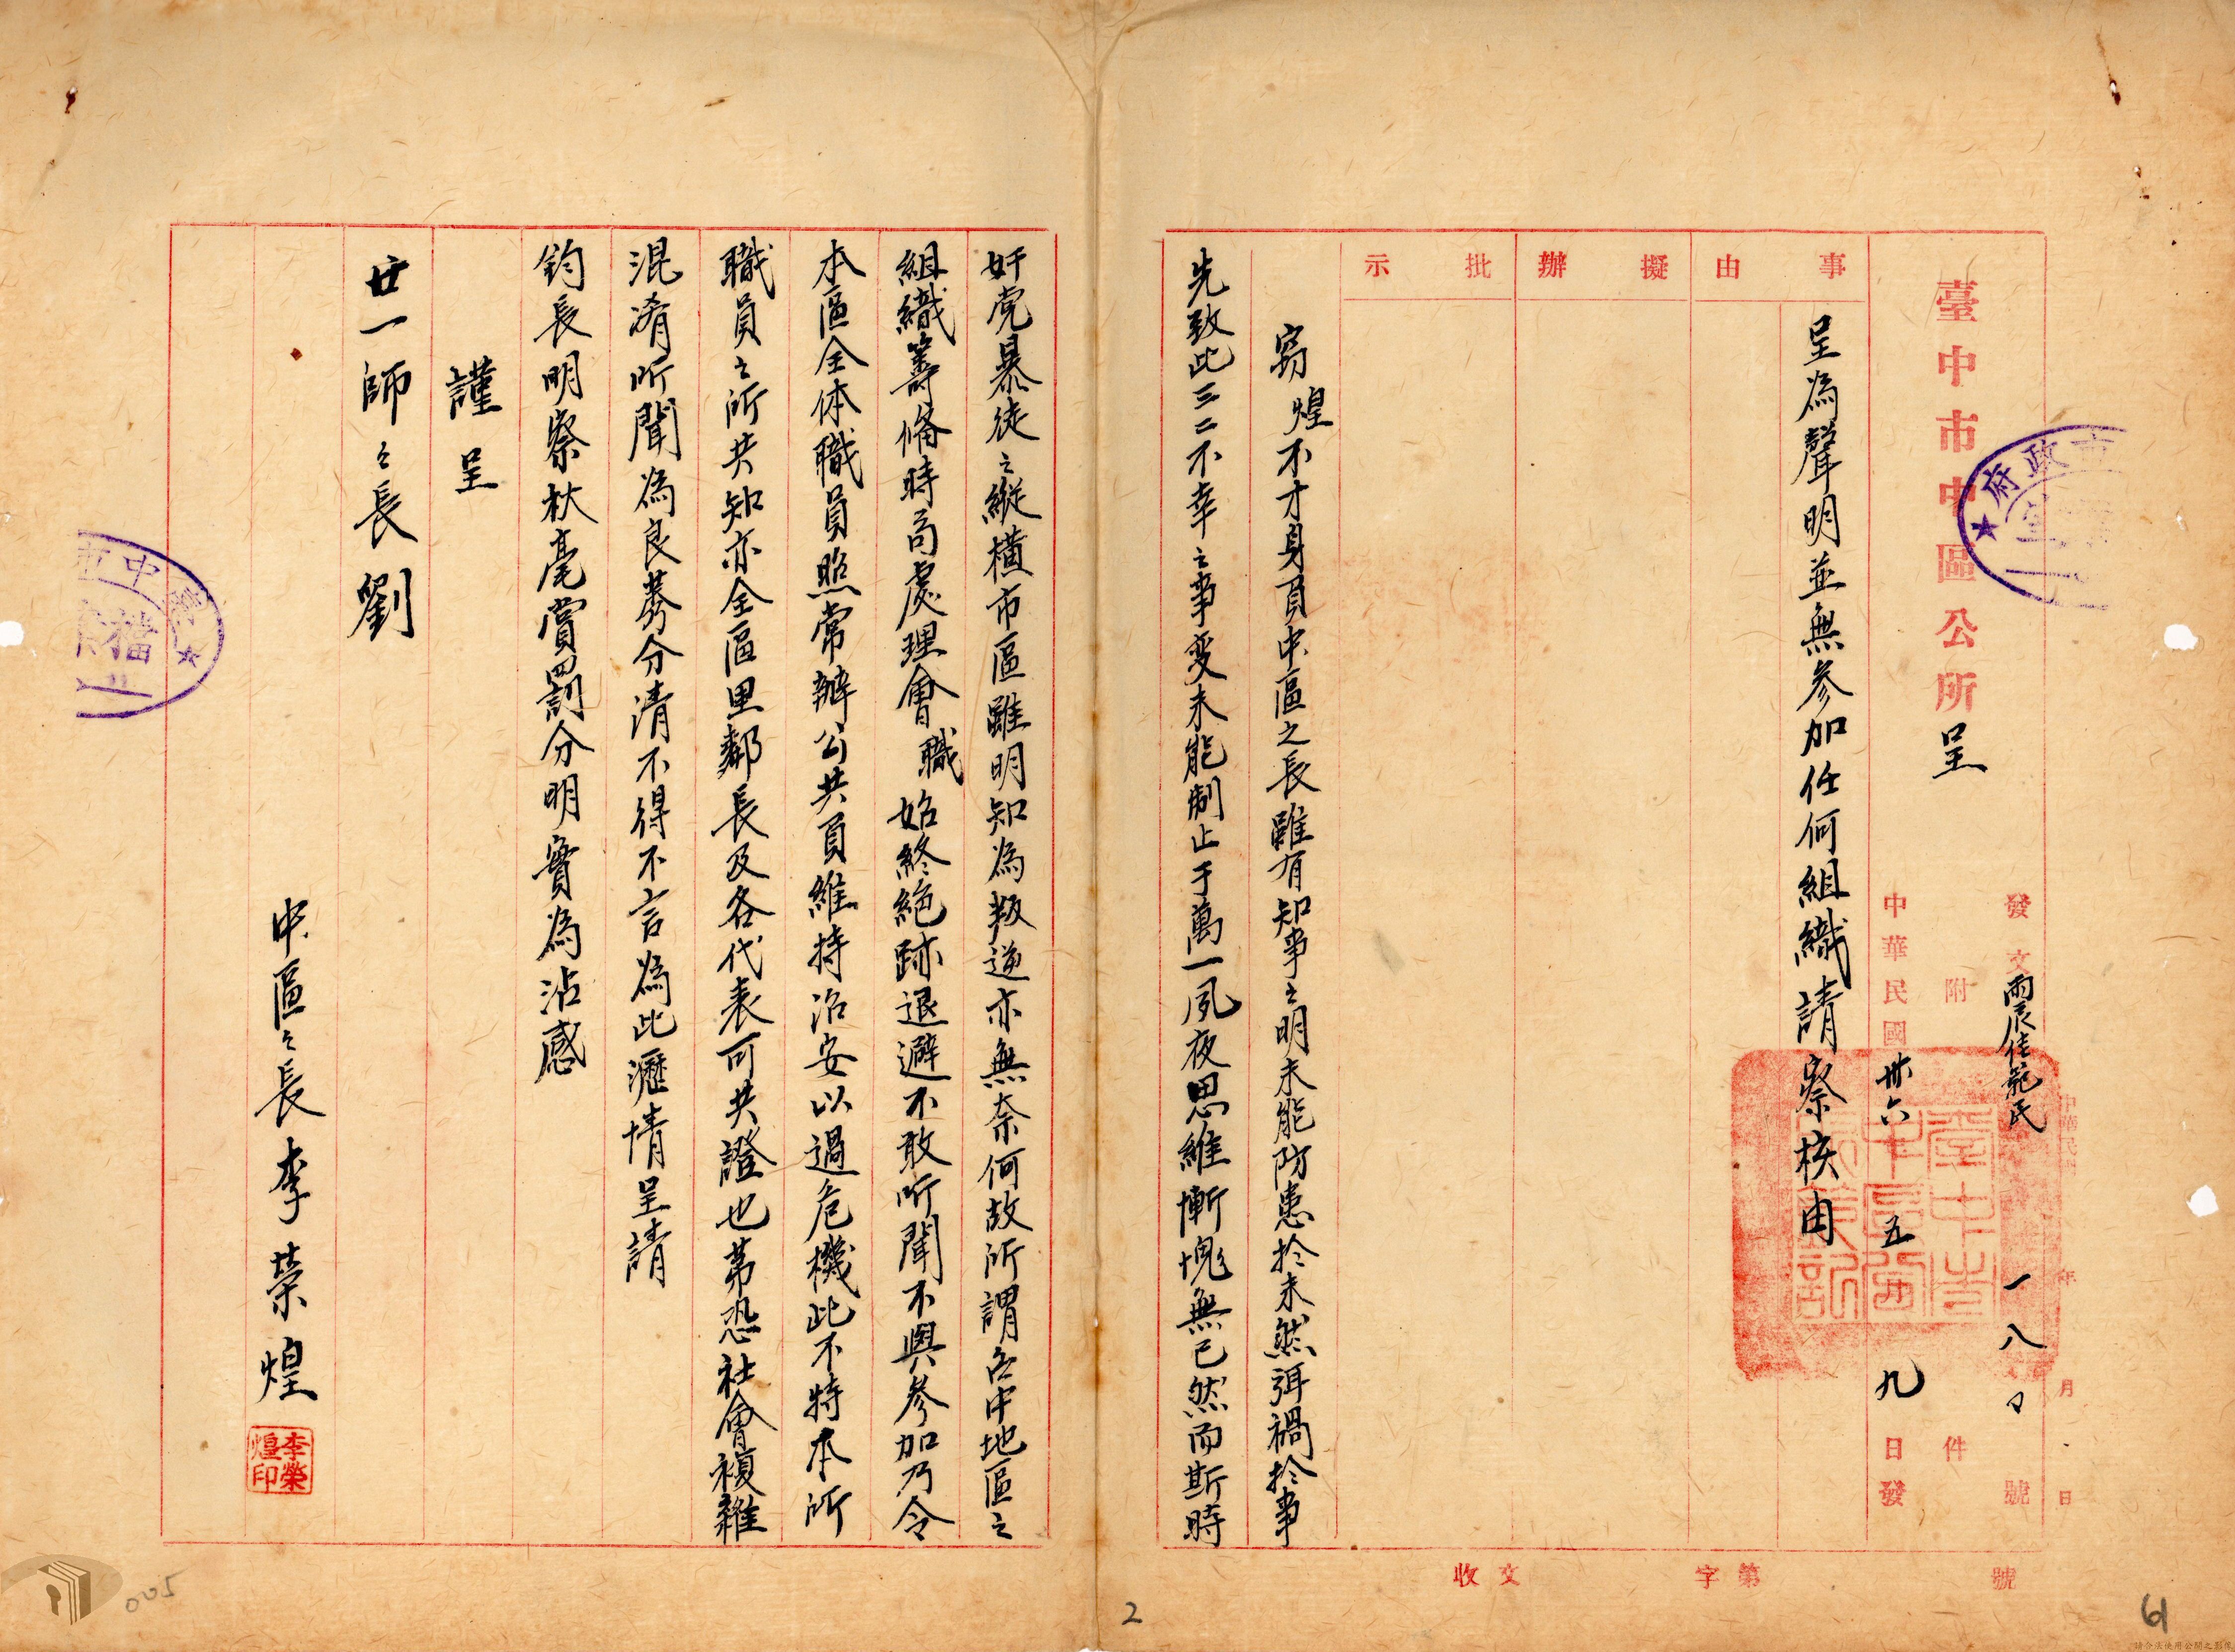 臺中市中區公所 呈
發文 震佳範民 一八〇 號
附 件
中華民國 卅六年 五 月 九 日發
事由
呈為聲明並無參加任何組織請察核由
擬辦
批示
竊煌不才身負中區之長雖有知事之明未能防患於未然弭禍於事
先致此三二不幸之事变未能制止于萬一夙夜思維慚愧無已然而斯時
奸党暴徒之縱橫市區雖明知為叛逆亦無奈何故所謂台中地區之
組織籌備時局處理會職始終絕跡退避不敢所聞不與參加乃令
本區全体職員照常辦公共負維持治安以過危機此不特本所
職員之所共知亦全區里鄰長及各代表可共證也苐恐社會複雜
混淆所聞為良莠分清不得不言為此瀝情呈請
鈞長明察秋毫賞罰分明實為沾感
謹呈
廿一師々長劉
中區々長李榮煌
李榮煌印
收文 字第 號
市政府
臺中市
檔
005
2
61